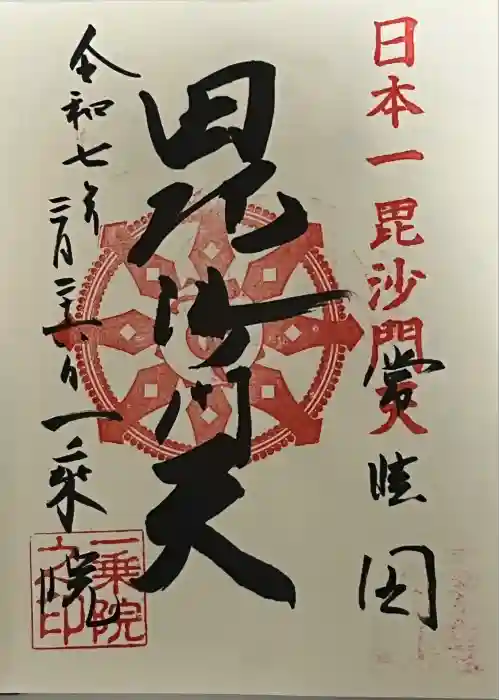 日本一毘沙門天
常陸国
毘沙門天
令和七年三月二十八日
一乗院
一乗院之印